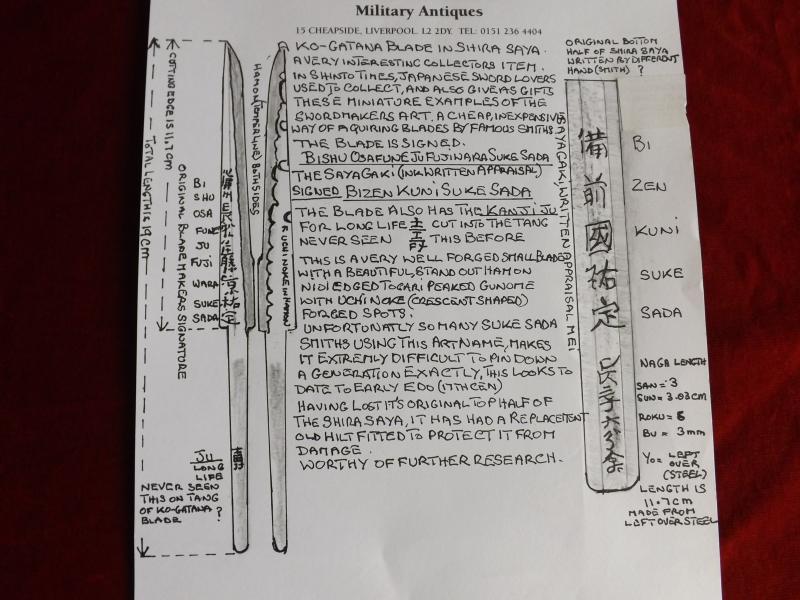 Military Antiques
15 CHEAPSIDE, LIVERPOOL. L2 2DY. TEL: 0151 236 4404
KO-GATANA BLADE IN SHIRA SAYA.
A VERY INTERESTING COLLECTORS ITEM.
IN SHINTO TIMES, JAPANESE SWORD LOVERS
USED TO COLLECT, AND ALSO GIVE AS GIFTS
THESE MINIATURE EXAMPLES OF THE
SWORDMAKERS ART. A CHEAP, INEXPENSIVE
WAY OF AQUIRING BLADES BY FAMOUS SMITHS.
THE BLADE IS SIGNED.
BISHU OSAFUNE JU FUJINARA SUKE SADA
THE SAYAGAKI (INK WRITTEN APPRAISAL)
SIGNED BIZEN KUNI SUKE SADA
THE BLADE ALSO HAS THE KANJI JU
FOR LONG LIFE CUT INTO THE TANG
NEVER SEEN THIS BEFORE
THIS IS A VERY WELL FORGED SMALL BLADE
WITH A BEAUTIFUL, STAND OUT HAMON
NIOI EDGED TOGARI PEAKED GUNOME
WITH UCHINOKE (CRESCENT SHAPED)
FORGED SPOTS.
UNFORTUNATLY SO MANY SUKE SADA
SMITHS USING THIS ART NAME, MAKES
IT EXTREMLY DIFFICULT TO PIN DOWN
A GENERATION EXACTLY, THIS LOOKS TO
DATE TO EARLY EDO (17TH CEN)
HAVING LOST IT'S ORIGINAL TOP HALF OF
THE SHIRA SAYA, IT HAS HAD A REPLACEMENT
OLD HILT FITTED TO PROTECT IT FROM
DAMAGE.
WORTHY OF FURTHER RESEARCH.
TOTAL LENGTH IS 19 CM
CUTTING EDGE IS 11.7 CM
ORIGINAL BLADE MAKERS SIGNATORE
BI
SHU
OSA
FUNE
JU
FUJI
WARA
SUKE
SADA
JU
LONG
LIFE
NEVER SEEN
THIS ON TANG
OF KO-GATANA ?
BLADE
HAMON (TEMPERLINE) BOTH SIDES
UCHINOKE IN HAMON
SAYAGAKI, WRITTEN APPRAISAL MEI
ORIGINAL BOTTOM
HALF OF SHIRA SAYA
WRITTEN BY DIFFERENT
HAND (SMITH) ?
備前國祐定
BI
ZEN
KUNI
SUKE
SADA
NAGA LENGTH
SAN = 3
SUN = 3.03CM
ROKU = 6
BU = 3mm
YO = LEFT
OVER
(STEEL)
LENGTH IS
11.7CM
MADE FROM
LEFT OVER STEEL